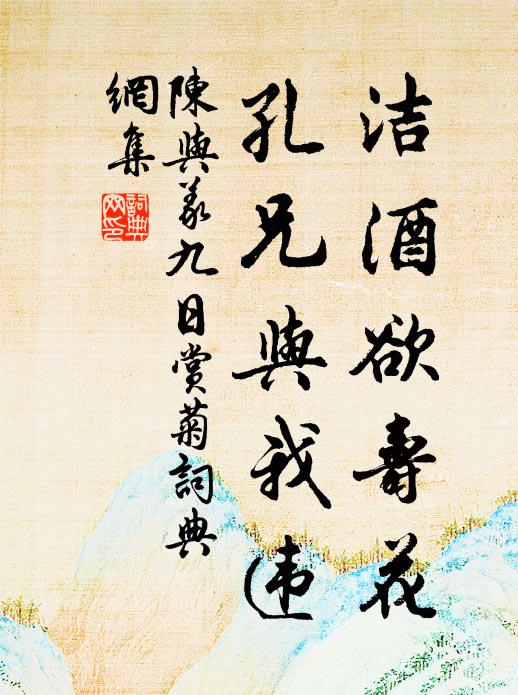 洁酒欲壽花
孔兄與我违
陳與义九日賞菊詞典
網集
詞典
网印